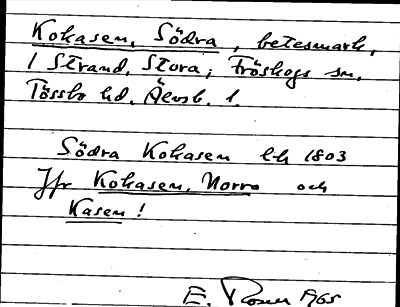 Kokasen, Södra, betesmark,
i Strand, Stora; Fröskogs sn,
Tössbo hd. Älvsb. l.
Södra Kokasen lk 1803
Jfr Kokasen, Norra och
Kasen!
E. Rosen 1965